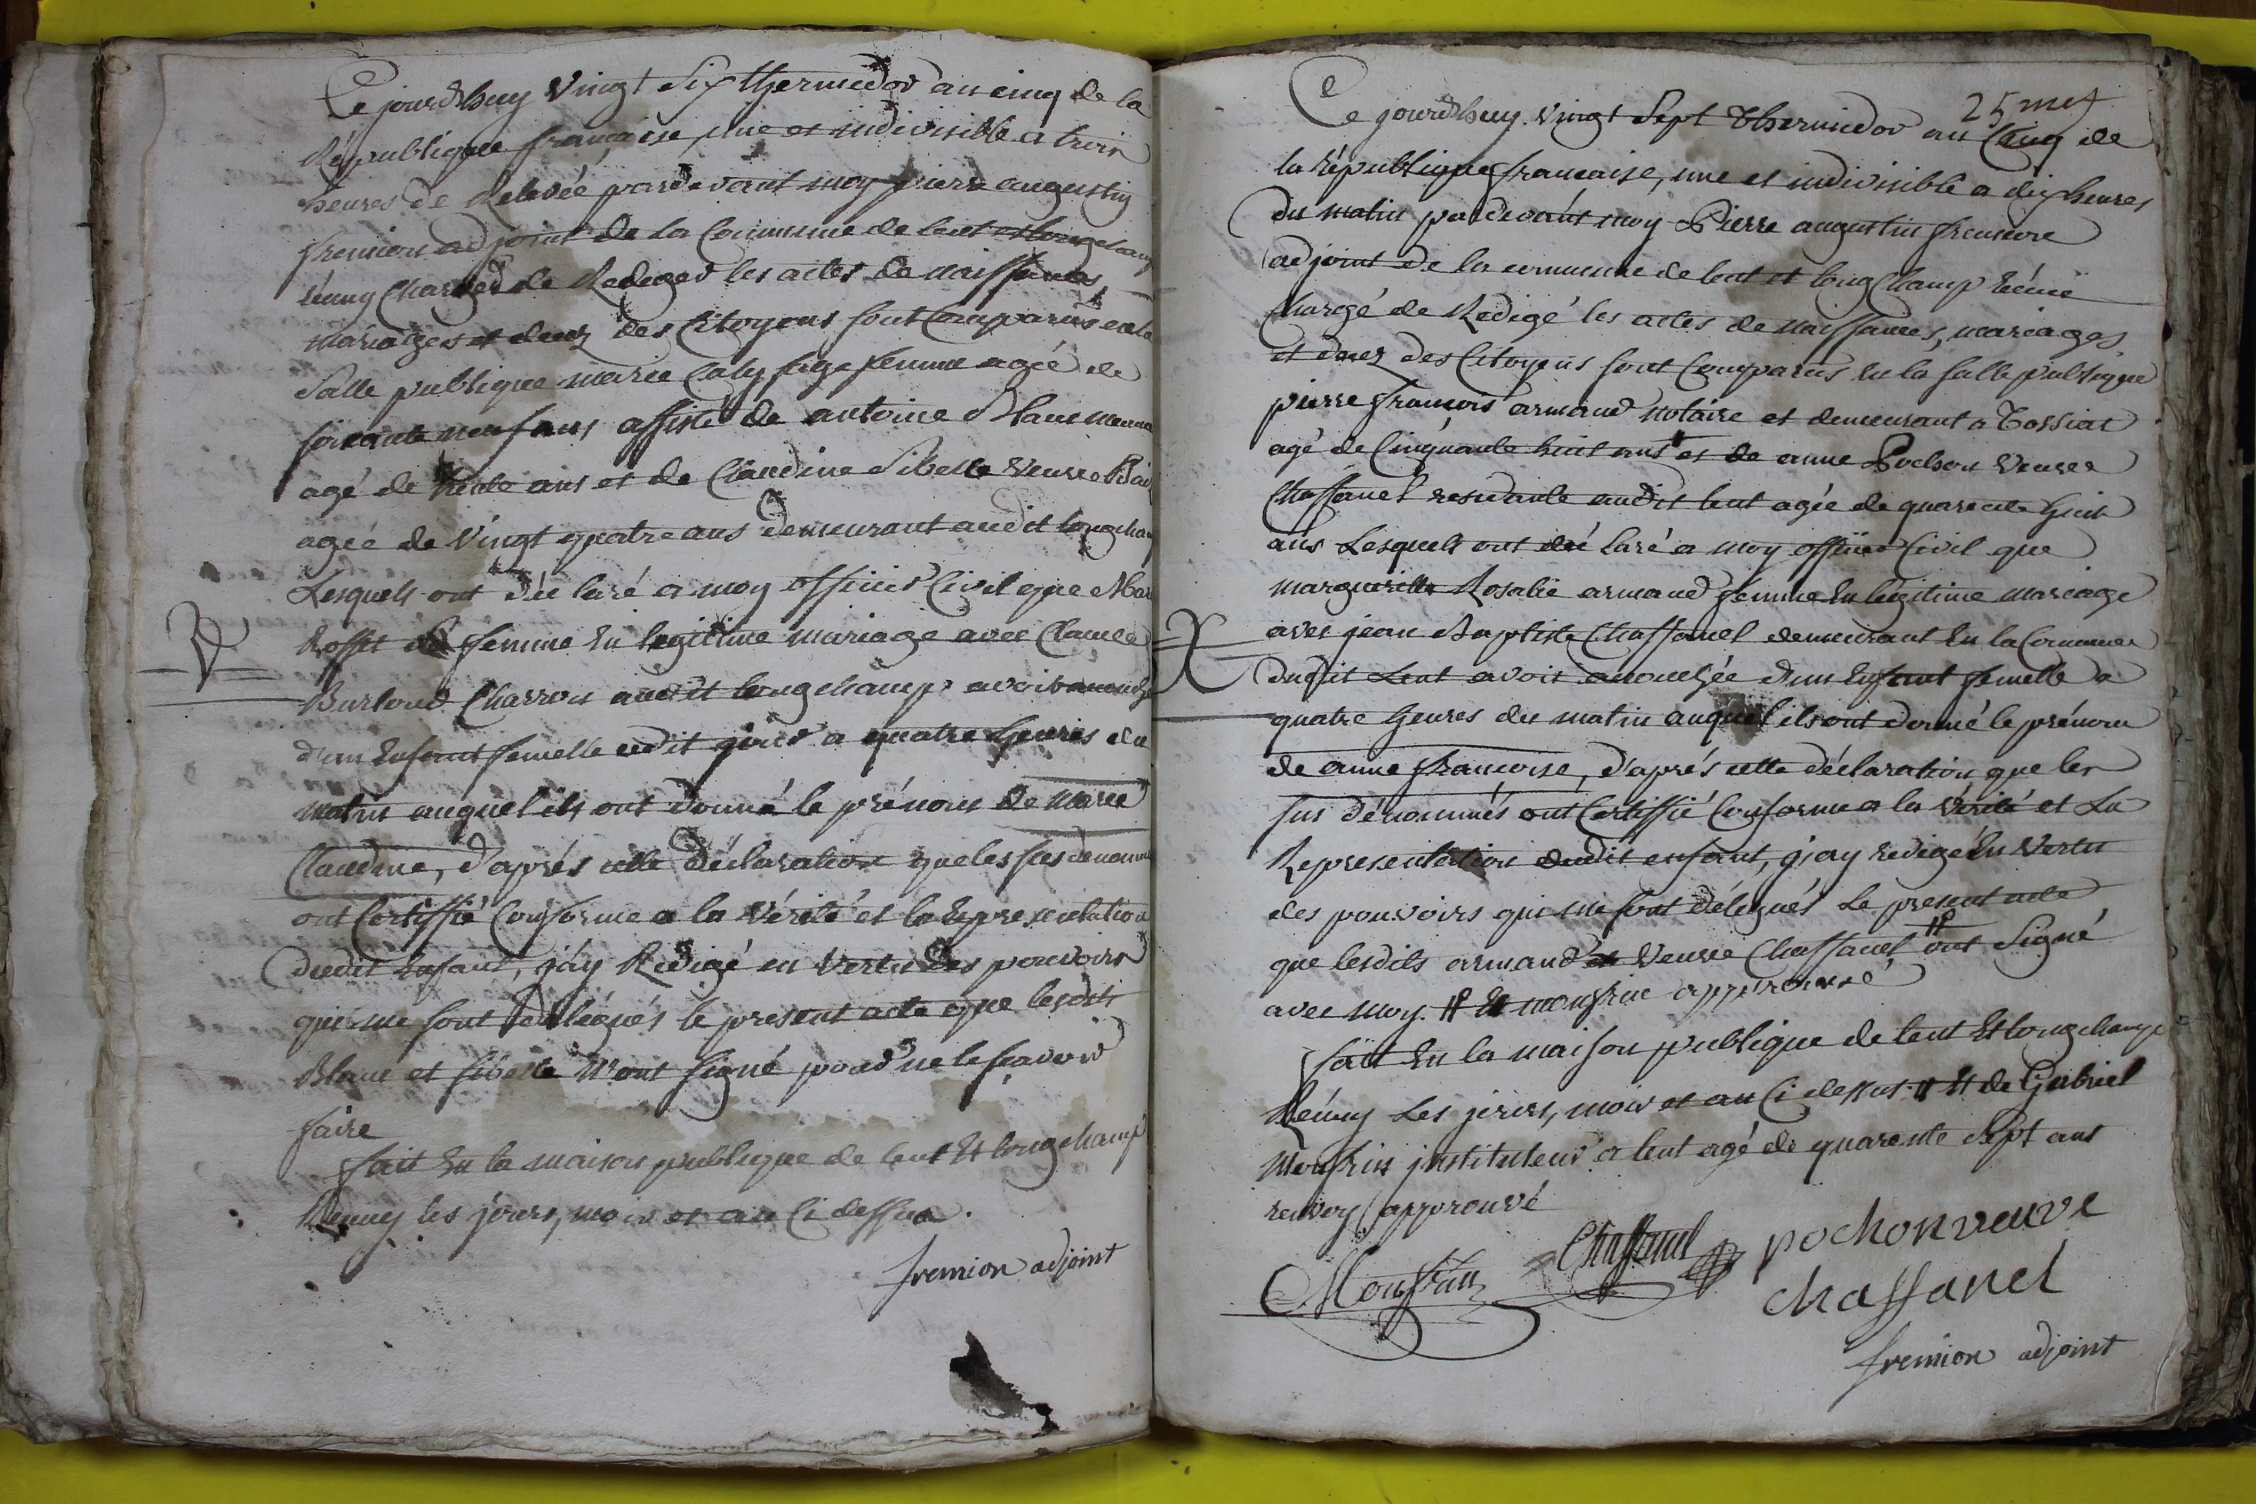 Ce jourdhuy vingt six thermidor an cinq de la
République française, une et indivisible a trois
heures de Relevée pardevant moy pierre augustin
fremion adjoint de la Commune de lent et longchamp
réuny Chargé de Rediger les actes de naissances,
mariages et deuz des Citoyens sont Comparus en la
Salle publique marie Caly sage femme agée de
soixante neuf ans assisté de antoine Blanc
agé de trente ans et de Claudine Sibelle veuve
agée de vingt quatre ans demeurant audit longchamp
Lesquels ont déclaré a moy officier Civil que
Rosset femme En legitime mariage avec Claude
Burtoud Charron audit longchamp avoit accouché
d'un Enfant femelle cedit jour a quatre heures du
matin auquel ils ont donné le prénom de marie
Claudine, d'aprés cette déclaration que les sus denommés
ont Certiffié Conforme a la vérité et la representation
dudit Enfant, j'ay Redigé en vertu des pouvoirs
qui me sont délégués le present acte que lesdits
Blanc et sibelle n'ont signé pour ne le sçavoir
faire
fait En la maison publique de lent Et longchamp
Réuny les jours, mois et an Ci dessus.
fremion adjoint
25 met
Ce jourdhuy vingt sept thermidor an Cinq de
la République française, une et indivisible a dix heures
du matin pardevant moy Pierre augustin fremion
adjoint de la commune de lent et longchamp réunii
Chargé de Redigé les actes de naissances, mariages,
et deuz des Citoyens sont Comparus En la salle publique
pierre françois armand notaire et demeurant a Tossiat
agé de Cinquante huit ans # et de anne Pochon veuve
Chassanel residante audit lent agée de quarante huit
ans Lesquels ont déclaré a moy officier Civil que
margueritte Rosalie armand femme En legitime mariage
avec jean Baptiste Chassanel demeurant En la Commune
dudit Lent avoit accouchée d'un Enfant femelle a
quatre heures du matin auquel ils ont donné le prénom
de anne françoise, d'aprés cette déclaration que les
sus dénommés ont Certiffié Conforme a la vérité et La
Representation dudit enfant, j'ay redigé En vertu
des pouvoirs qui me sont délégués Le present acte
que lesdits armand et veuve Chassanel # ont Signé
avec moy. # Et monfrin approuvé
fait En la maison publique de lent Et longchamp
Réuny Les jours, mois et an Ci dessus. # Et de Gabriel
Monfrin instituteur a lent agé de quarente Sept ans
renvoy approuvé
Monfrin Chassanel pochon veuve
chassanel
fremion adjoint